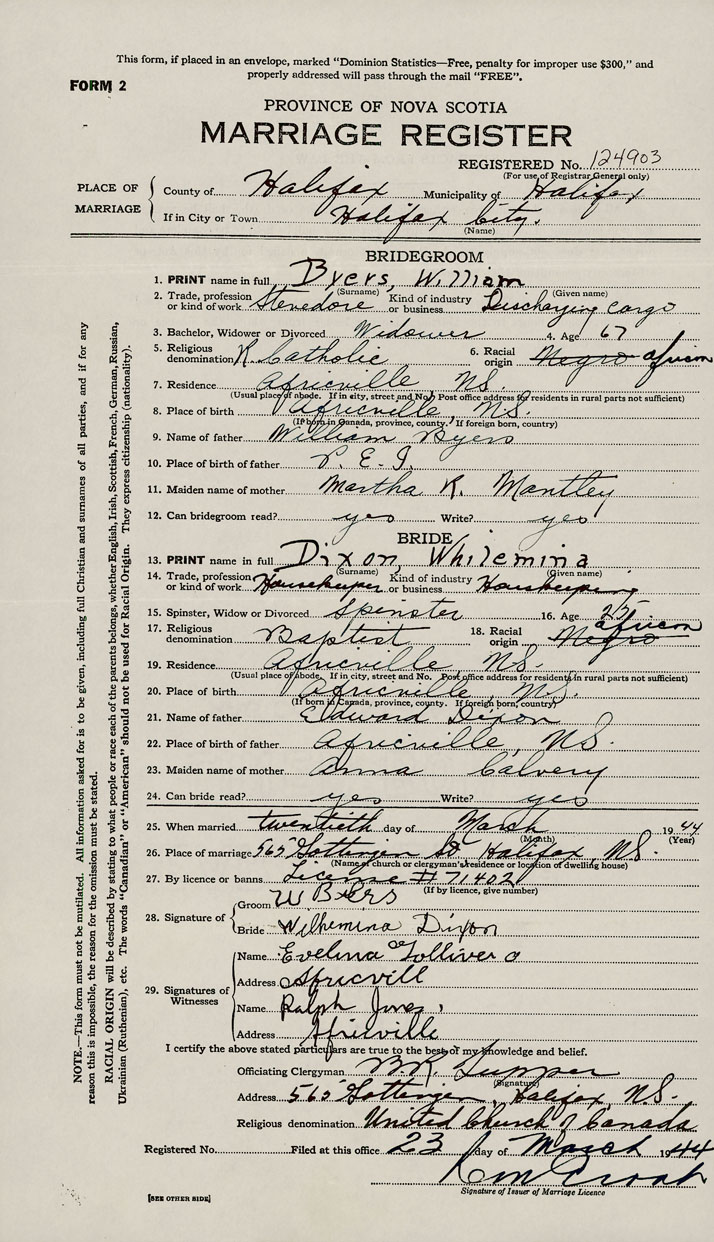 This form, if placed in an envelope, marked "Dominion Statistics—Free, penalty for improper use $300," and
properly addressed will pass through the mail "FREE".
FORM 2
PROVINCE OF NOVA SCOTIA
MARRIAGE REGISTER
REGISTERED No. 124903
(For use of Registrar General only)
PLACE OF MARRIAGE
County of Halifax Municipality of Halifax
If in City or Town Halifax City.
(Name)
BRIDEGROOM
1. PRINT name in full Byers, William
(Surname) (Given name)
2. Trade, profession or kind of work Stevedore Kind of industry or business Discharging cargo
3. Bachelor, Widower or Divorced Widower 4. Age 67
5. Religious denomination R. Catholic 6. Racial origin Negro African
7. Residence Africville N.S.
(Usual place of abode. If in city, street and No. Post office address for residents in rural parts not sufficient)
8. Place of birth Africville, N.S.
(If born in Canada, province, county. If foreign born, country)
9. Name of father William Byers
10. Place of birth of father P. E. I.
11. Maiden name of mother Martha K. Mantley
12. Can bridegroom read? yes Write? yes
BRIDE
13. PRINT name in full Dixon, Whilemina
(Surname) (Given name)
14. Trade, profession or kind of work Housekeeper Kind of industry or business Housekeeping
15. Spinster, Widow or Divorced Spinster 16. Age 25
17. Religious denomination Baptist 18. Racial origin Negro African
19. Residence Africville N.S.
(Usual place of abode. If in city, street and No. Post office address for residents in rural parts not sufficient)
20. Place of birth Africville, N.S.
(If born in Canada, province, county. If foreign born, country)
21. Name of father Edward Dixon
22. Place of birth of father Africville, N.S.
23. Maiden name of mother Anna Calvery
24. Can bride read? yes Write? yes
25. When married twentieth day of March 1944
(Month) (Year)
26. Place of marriage 565 Gottingen St Halifax, N.S.
(Name of church or clergyman's residence or location of dwelling house)
27. By licence or banns License # 71402
(If by licence, give number)
28. Signature of
Groom W Byers
Bride Wilhemina Dixon
29. Signatures of Witnesses
Name Evelina Tolliver
Address Africvill
Name Ralph Jones
Address Africville
I certify the above stated particulars are true to the best of my knowledge and belief.
Officiating Clergyman Tupper
(Signature)
Address 565 Gottingen, Halifax, N.S.
Religious denomination United Church of Canada
Registered No. Filed at this office 23 day of March 1944
Signature of Issuer of Marriage Licence
[SEE OTHER SIDE]
NOTE.—This form must not be mutilated. All information asked for is to be given, including full Christian and surnames of all parties, and if for any
reason this is impossible, the reason for the omission must be stated.
RACIAL ORIGIN will be described by stating to what people or race each of the parents belongs, whether English, Irish, Scottish, French, German, Russian,
Ukrainian (Ruthenian), etc. The words "Canadian" or "American" should not be used for Racial Origin. They express citizenship (nationality).